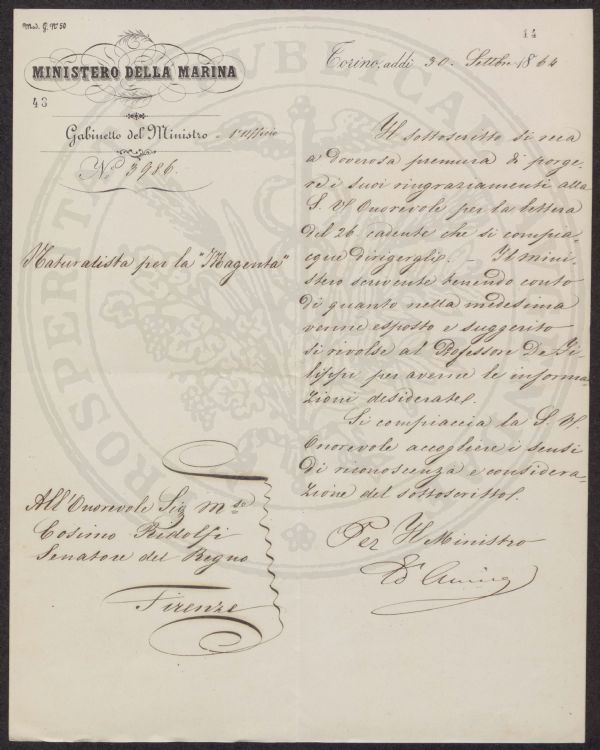 Mod. G. N° 50
44
MINISTERO DELLA MARINA
43
Gabinetto del Ministro - 1° Ufficio
N° 3986.
Torino, addì 30. Settbre 1864
Naturalista per la "Magenta"
Il sottoscritto si reca
a doverosa premura di porge-
re i suoi ringraziamenti alla
S. V. Onorevole per la lettera
del 26 cadente che si compia-
cque dirigergli. - Il mini-
stero scrivente tenendo conto
di quanto nella medesima
venne esposto e suggerito
si rivolse al Professore De Fi-
lippi per averne le informa-
zione desiderate.
Si compiaccia la S. V.
Onorevole accogliere i sensi
di riconoscenza e considera-
zione del sottoscritto.
Per Il Ministro
All'Onorevole Sig. Mse
Cosimo Ridolfi
Senatore del Regno
Firenze
PUBLICAE
PROSPERITATI